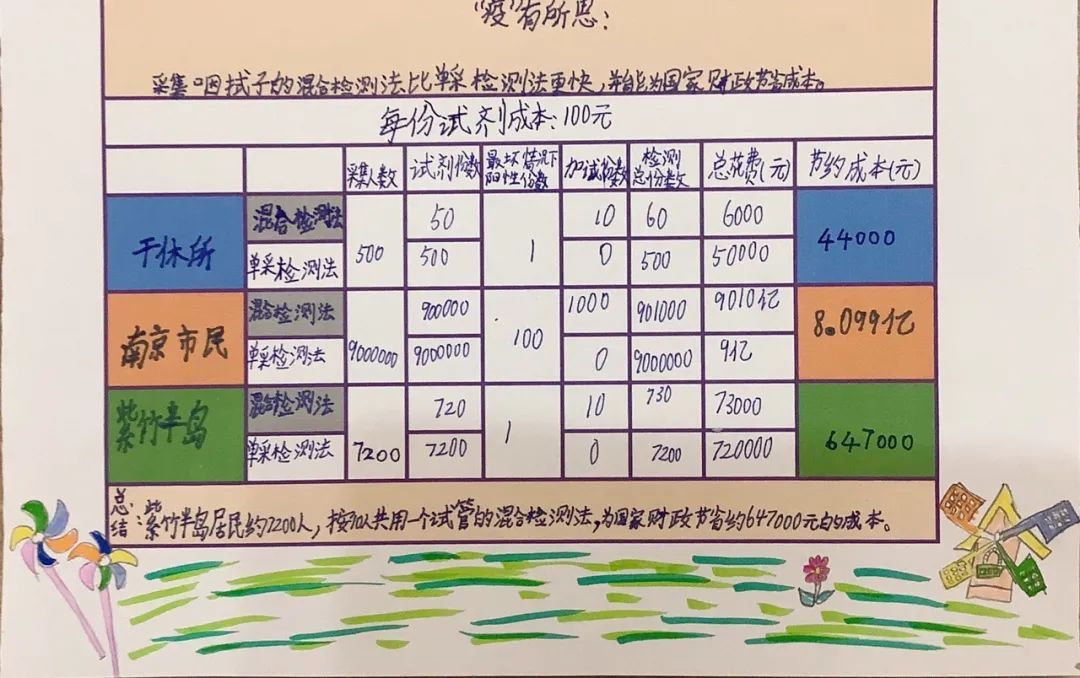 "疫"有所思：
采集咽拭子的混合检测法比单采检测法更快，并且能为国家财政节省成本。
每份试剂成本：100元
采集人数 试剂份数 最坏情况下阳性份数 加试份数 检测总份数 总花费(元) 节约成本(元)
干休所 混合检测法 500 50 1 10 60 6000 44000
单采检测法 500 0 500 50000
南京市民 混合检测法 9000000 900000 100 1000 901000 9010亿 8.099亿
单采检测法 9000000 0 9000000 9亿
紫竹半岛 混合检测法 7200 720 1 10 730 73000 647000
单采检测法 7200 0 7200 720000
总结：紫竹半岛居民约7200人，按10人共用一个试管的混合检测法，为国家财政节省约647000元的成本。